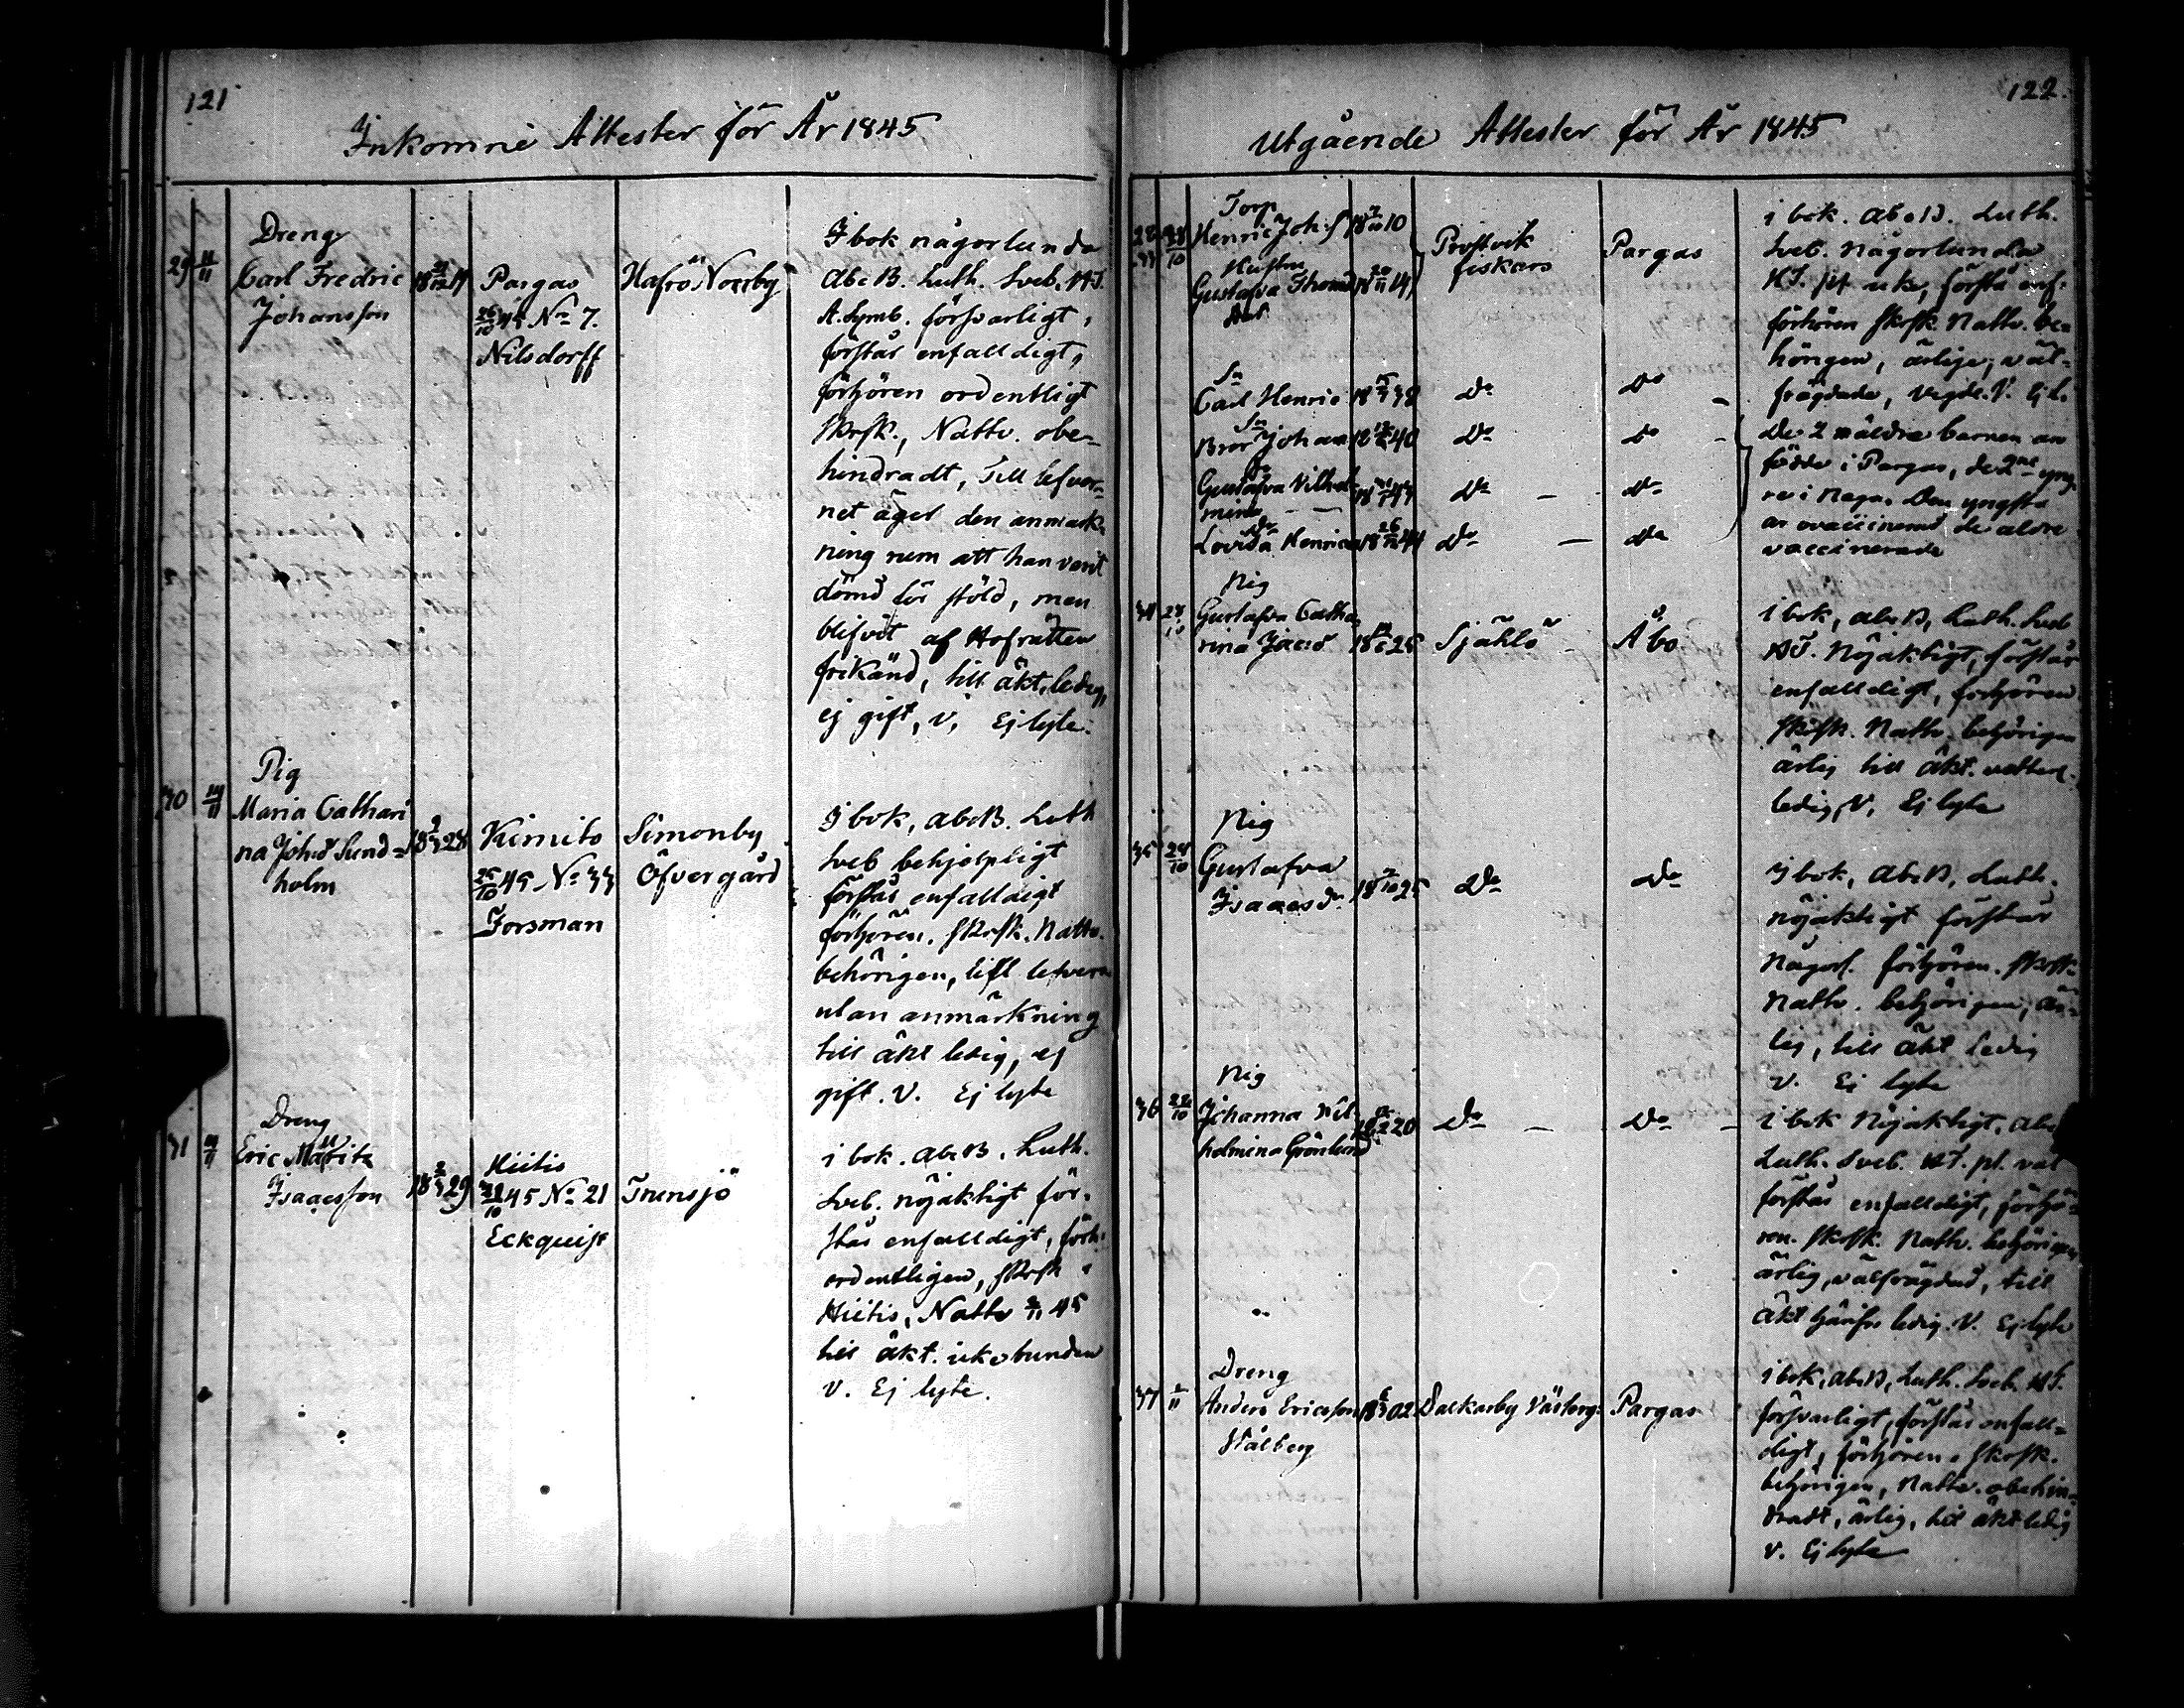 121
Inkomne Attester för År 1845
29 11/11
Dreng
Carl Fredric
Johansson
Pargas
26/10 45 No 7.
Nilsdorff
Hafrö Norrby
I bok någorlunda
AbcB. Luth. Sveb. HT.
A. Symb. försvarligt,
förstår enfalldigt,
förhören ordentligt
Skrsk., Nattv. obe-
hindradt, Till lefver-
net äger den anmärk-
ning som att han varit
dömd för stöld, men
blifvit af Hofrätten
frikänd, till äkt. ledig,
ej gift, v, Ej lyte.
30 14/11
Pig
Maria Cathari
na Johsdr Sund-
holm
Kimito
25/10 45 No 33
Forsman
Simonby
Öfvergård
I bok, AbcB. Luth
Sveb behjelpligt
förstår enfalldigt
förhören. Skrsk. Nattv.
behörigen, till lefverne
utan anmärkning
till äkt ledig, ej
gift. V. Ej lyte
31
Dreng
Eric Mauritz
Isaacsson
18 29
Hiitis
45 No 21
Eckquist
Trunsjö
i bok. AbcB. Luth.
Sveb. nöjaktigt för-
står enfalldigt, förh.
ordentligen, Skrsk i
Hiitis, Nattv 2/11 45
till äkt. icke bunden
V. Ej lyte.
122.
Utgående Attester för År 1845
28/10
Torp
Henric Joh:s
18 10
Hustru
Gustafva Thomas
dotr
Prostvik
fiskars
Pargas
i bok. AbcB. Luth.
Sveb. någorlunda
HT. förstå enf.
förhören Skrsk. Nattv. be-
hörigen, ärlige, väl-
frägdade, Ej l.
Sn
Carl Henric
Do
Do
Sn
Bror Johan
Do
Do
De 2 äldre barnen äro
födde i Pargas, de 2ne yng-
re i Nagu. Den yngsta
är ovaccinerad de äldre
vaccinerade
Dr
Gustafva Vilhel
mina
Do
Do
Dr
Lovisa Henrica
26/12 44
Do
Do
34 28/10
Pig
Gustafva Catha
rina Jacsd
18 25
Själö
Åbo
i bok, AbcB, Luth. Sveb
HT. Nöjaktigt, förstår
enfalldigt, förhören
Skrsk. Nattv. behörigen
ärlig till äkt.
ledig, V, Ej lyte
35 28/10
Pig
Gustafva
Isaacsdr
18 25
Do
Do
I bok, AbcB, Luth.
nöjaktigt förstår
Någorl. förhören. Skrsk.
Nattv. behörigen, är-
lig, till äkt ledig
V. Ej lyte
36 28/10
Pig
Johanna Vil
helmina Grönlund
20
Do
Do
i bok Nöjaktigt, Abc
Luth. Sveb. HT. pl. väl
förstår enfalldigt, förhö-
ren. Skrsk. Nattv. behörigen
ärlig, välfrägdad, till
äkt ledig. V. Ej lyte
37
Dreng
Anders Ericsson
Stålberg
02
Dalkarby Västerg:
Pargas
i bok, AbcB, Luth. Sveb. HT.
försvarligt, förstår enfall-
digt, förhören. Skrsk.
behörigen, Nattv. obehin-
dradt, ärlig, till äkt ledig
V. Ej lyte